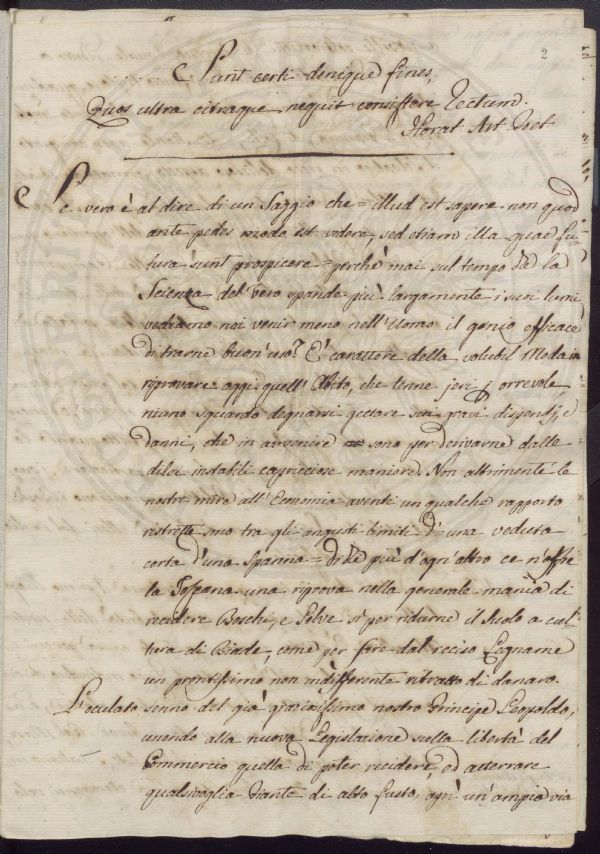 2
Sunt certi denique fines,
Quos ultra citraque nequit consistere Rectum.
Horat. Art. Poet.
Se vero è al dire di un Saggio che = illud est sapere non quod
ante pedes modo est videre, sed etiam illa quae fu-
tura sunt prospicere = perchè mai sul tempo che la
Scienza del Vero spande più largamente i suoi lumi
vediamo noi venir meno nell'Uomo il genio efficace
di trarne buon'uso? E' carattere della volubil Moda in
riprovare oggi quell'Abito, che tenne jeri orrevole,
niuno sguardo degnarsi gettare sui gravi dispendj, e
danni, che in avvenire sono per derivarne dalle
di lei instabili capricciose maniere. Non altrimenti le
nostre mire all'Economia aventi un qualche rapporto
ristrette sono tra gli angusti limiti d'una veduta
corta d'una spanna = più d'ogn'altro ce n'offre
la Toscana una riprova nella generale mania di
recidere Boschi, e Selve sì per ridurne il Suolo a cul-
tura di Biade, come per fare dal reciso Legname
un prontissimo non indifferente ritratto di danaro.
L'oculato senno del già graziosissimo nostro Principe Leopoldo,
unendo alla nuova Legislazione sulla libertà del
Commercio quella di poter recidere, ed atterrare
qualsivoglia Piante di alto fusto, aprì un'ampia via